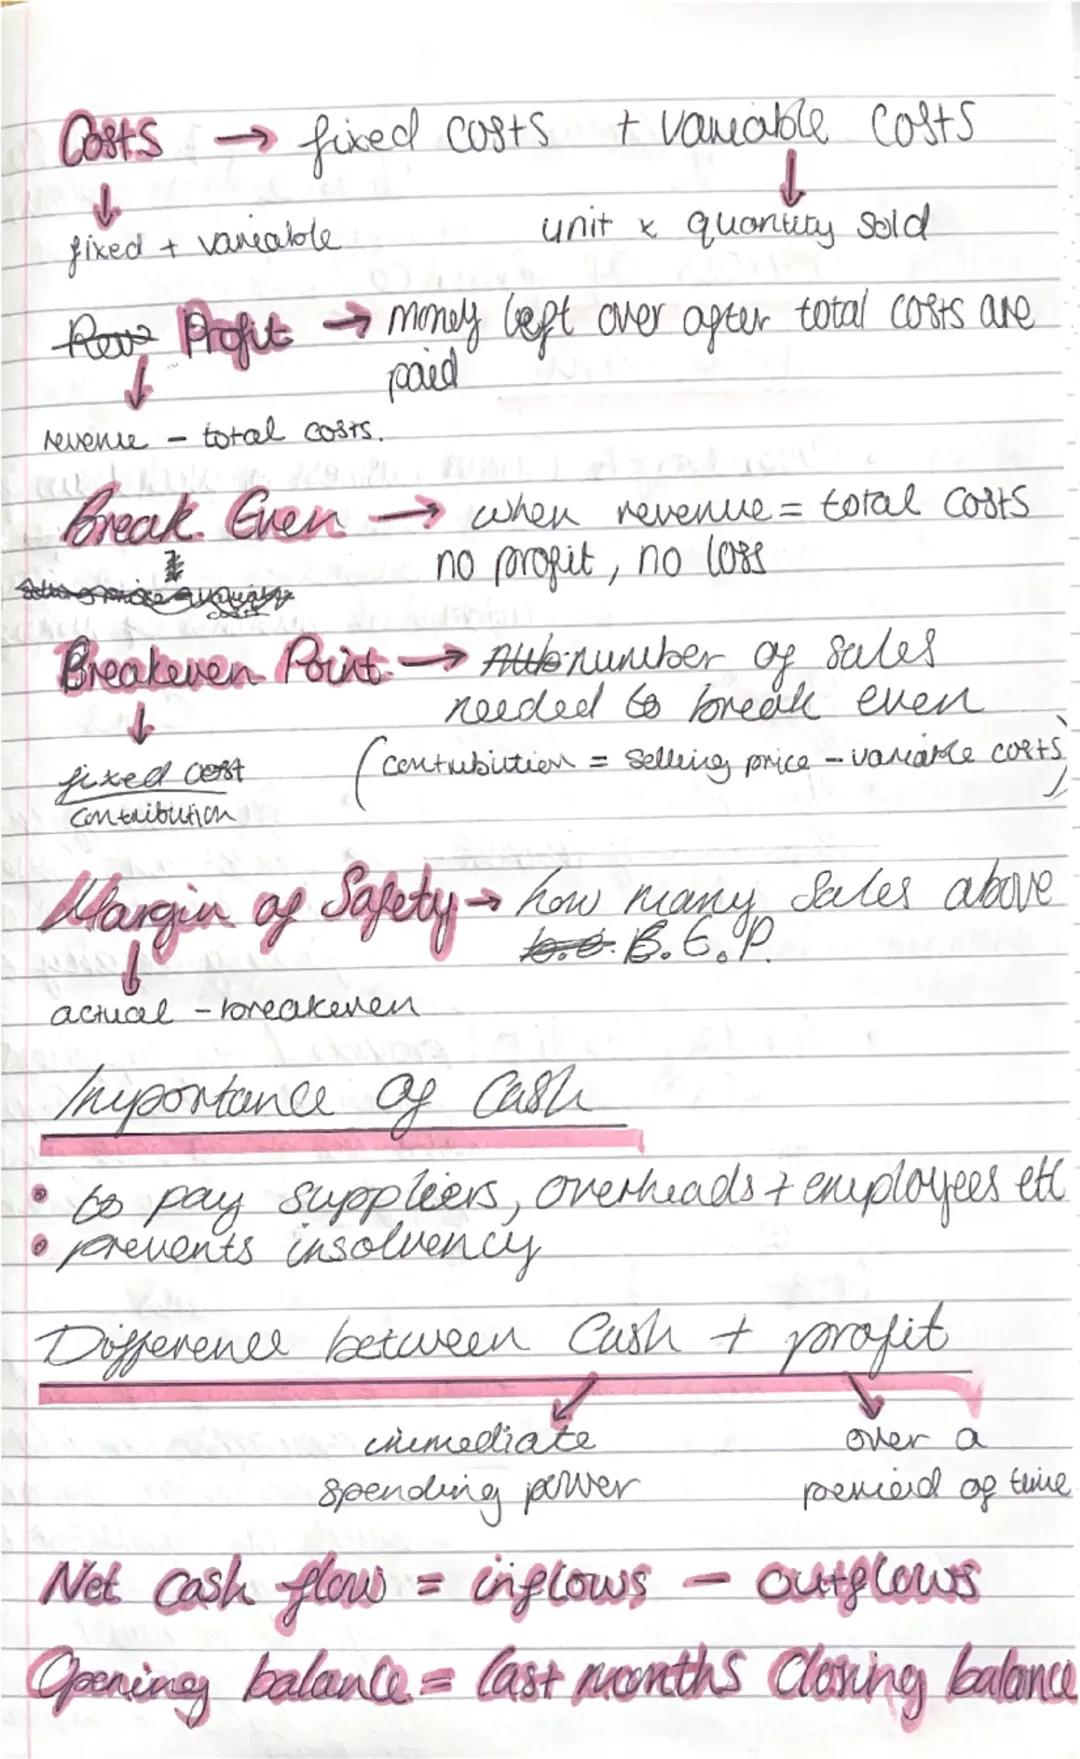 Costs → fixed costs + variable costs
↓ ↓
fixed + variable unit x quantity sold
Profit → money left over after total costs are
paid
↓
revenue - total costs.
Break Even → when revenue = total costs
no profit, no loss
Breakeven Point → number of sales
needed to break even
↓
fixed cost (contribution = selling price - variable costs)
contribution
Margin of Safety → how many sales above
B.E.P.
↓
actual - breakeven
Importance of Cash
• to pay suppliers, overheads + employees etc
• prevents insolvency
Difference between Cash + profit
immediate over a
spending power period of time
Net cash flow = inflows - outflows
Opening balance = last months Closing balance